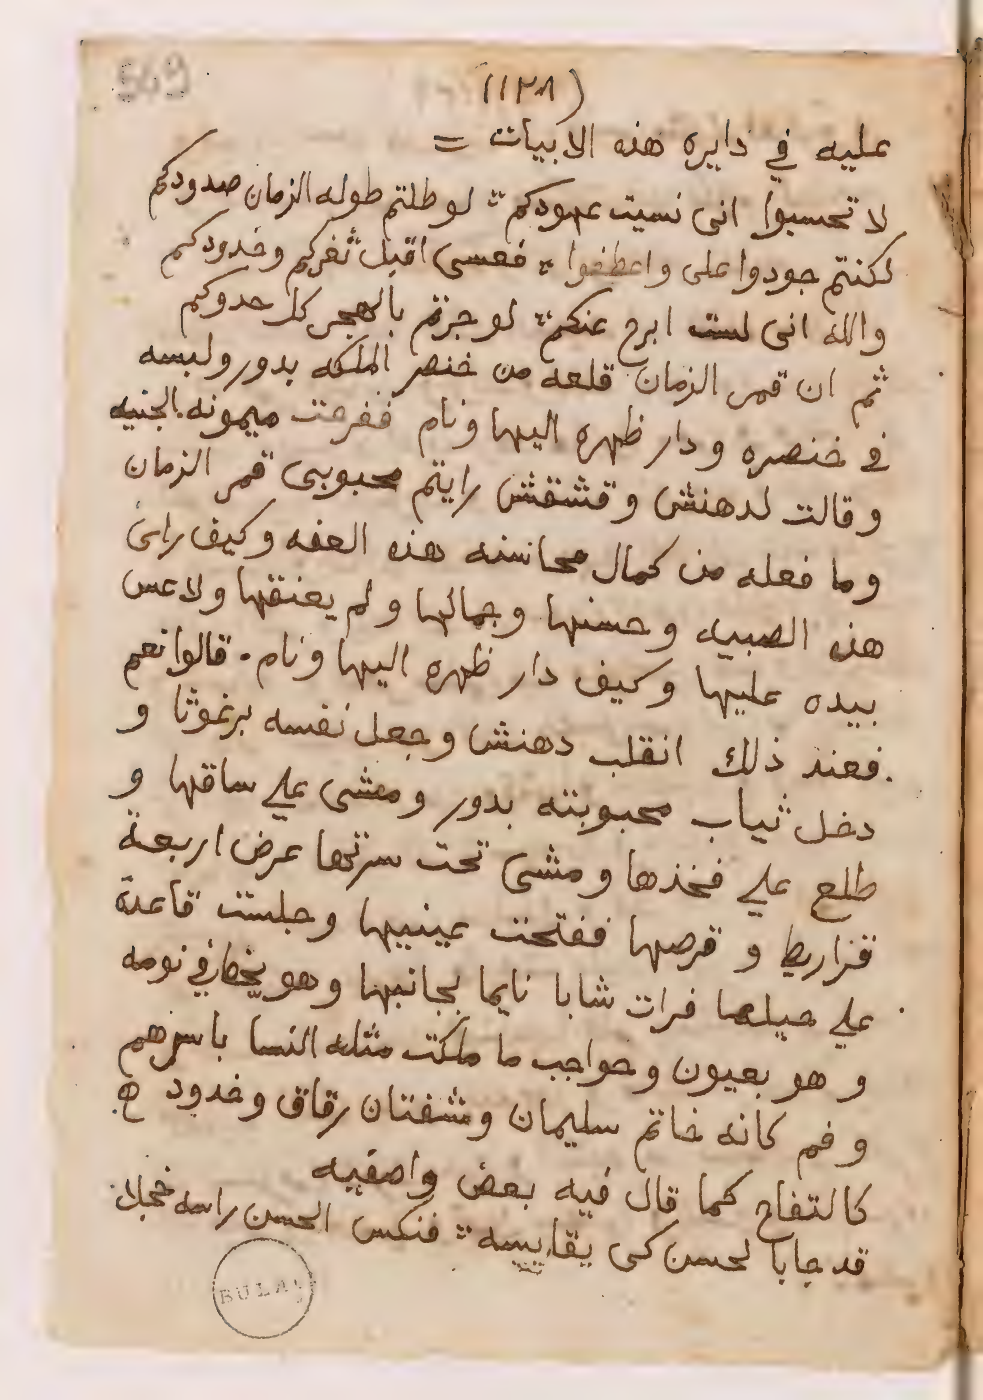 569
(١٢٨)
عليه في دايره هذه الابيات =
لا تحسبوا انى نسيت عهودكم لو طلتم طوله الزمان صدودكم
لكنتم جودوا على واعطفوا فعسى اقبل ثغركم وخدودكم
والله انى لست ابرح عنكم لو جزتم بالهجر كل حدوكم
ثم ان قمر الزمان قلعه من خنصر الملكه بدور ولبسه
في خنصره ودار ظهره اليها ونام ففرحت ميمونه الجنيه
وقالت لدهنش وقشقش رايتم محبوبى قمر الزمان
وما فعله من كمال محاسنه هذه العفه وكيف راى
هذه الصبيه وحسنها وجمالها ولم يعنقها ولا عس
بيده عليها وكيف دار ظهره اليها ونام . قالوا نعم
فعند ذلك انقلب دهنش وجعل نفسه برغوثا و
دخل ثياب محبوبته بدور ومشى علي ساقها و
طلع علي فخذها ومشى تحت سرتها عرض اربعة
قراريط و قرصها ففتحت عينيها وجلست قاعدة
علي حيلها فرات شابا نايما بجانبها وهو يخطر في نومه
و هو بعيون وحواجب ما ملكت مثله النسا باسرهم
و فم كانه خاتم سليمان وشفتان رقاق وخدود
كالتفاح كما قال فيه بعض واصفيه
قد جابا لحسن كى يقاييسه فنكس الحسن راسه خجلا
BULAC